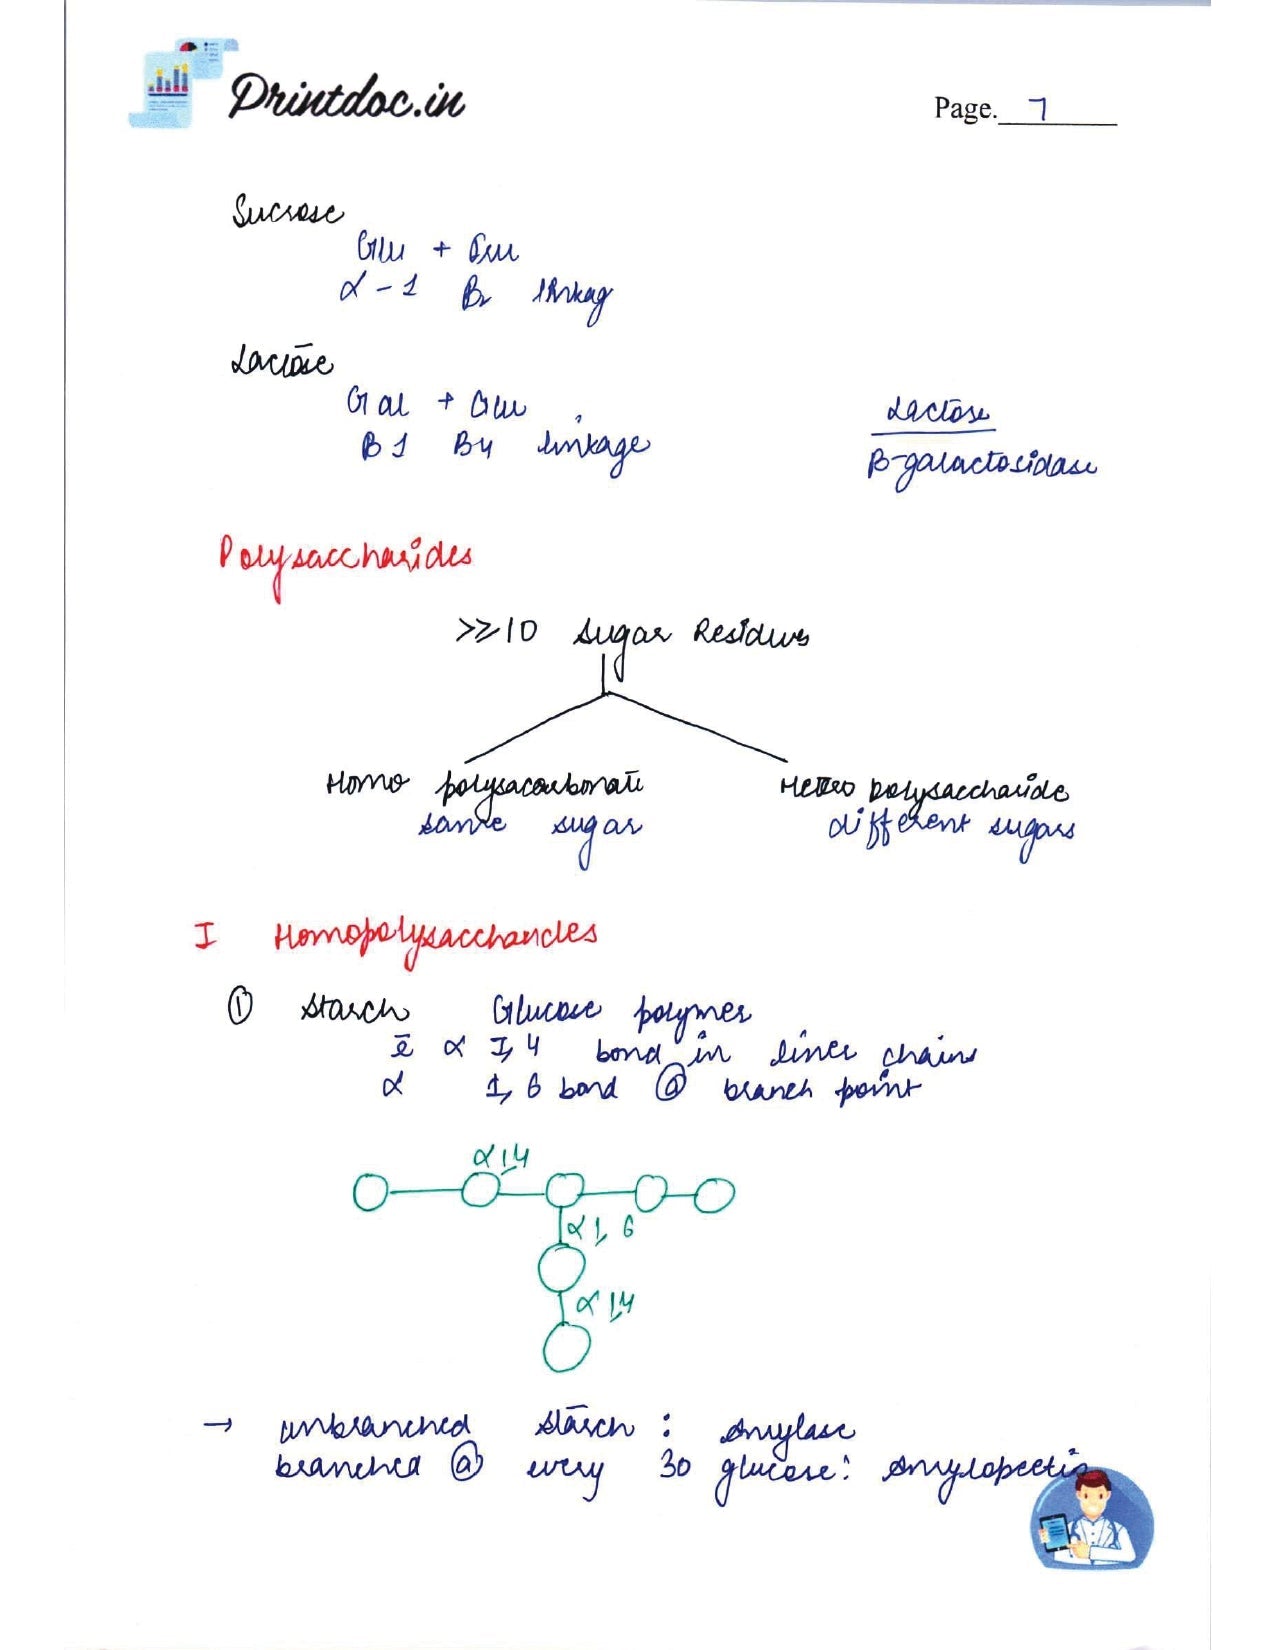 Printdoc.in
Page. 7
Sucrose
Glu + Fru
α - 1 β2 linkag
Lactose
Gal + Glu
B 1 B4 linkage
Lactose
β-galactosidase
Polysaccharides
>≥10 sugar Residues
Homo
Hetero polysaccharide
same sugar
different sugars
I Homopolysaccharides
① Starch Glucose polymer
c̄ α 1, 4 bond in liner chains
α 1, 6 bond @ branch point
α 1,4
α 1, 6
α 1,4
→ unbranched starch : Amylase
branched @ every 30 glucose: Amylopectin